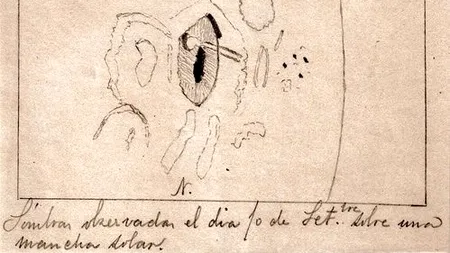 N.
Sombras observadas el dia 10 de Set.bre sobre una
mancha solar.